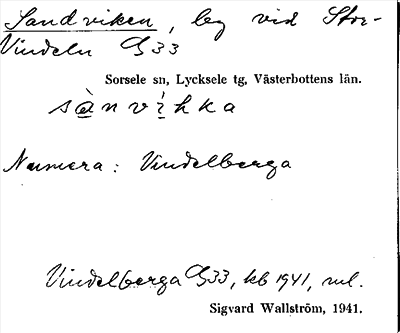 Sandviken, lg vid Stor-
Vindeln G33
Sorsele sn, Lycksele tg, Västerbottens län.
sànvìkka
Numera: Vindelberga
Vindelberga G33, kb 1941, nl.
Sigvard Wallström, 1941.